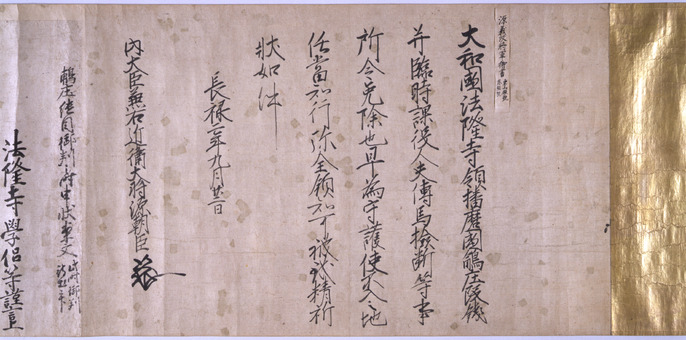 源義政将軍御書
大和國法隆寺領播磨國鵤庄段錢
并臨時課役人夫傳馬檢斷等事
所令免除也早為守護使不入之地
任當知行弥全領知可被致精祈
状如件
長禄 年九月 日
内大臣兼右近衛大将源朝臣
鵤庄 御判 申状案文
法隆寺學侶等謹言上